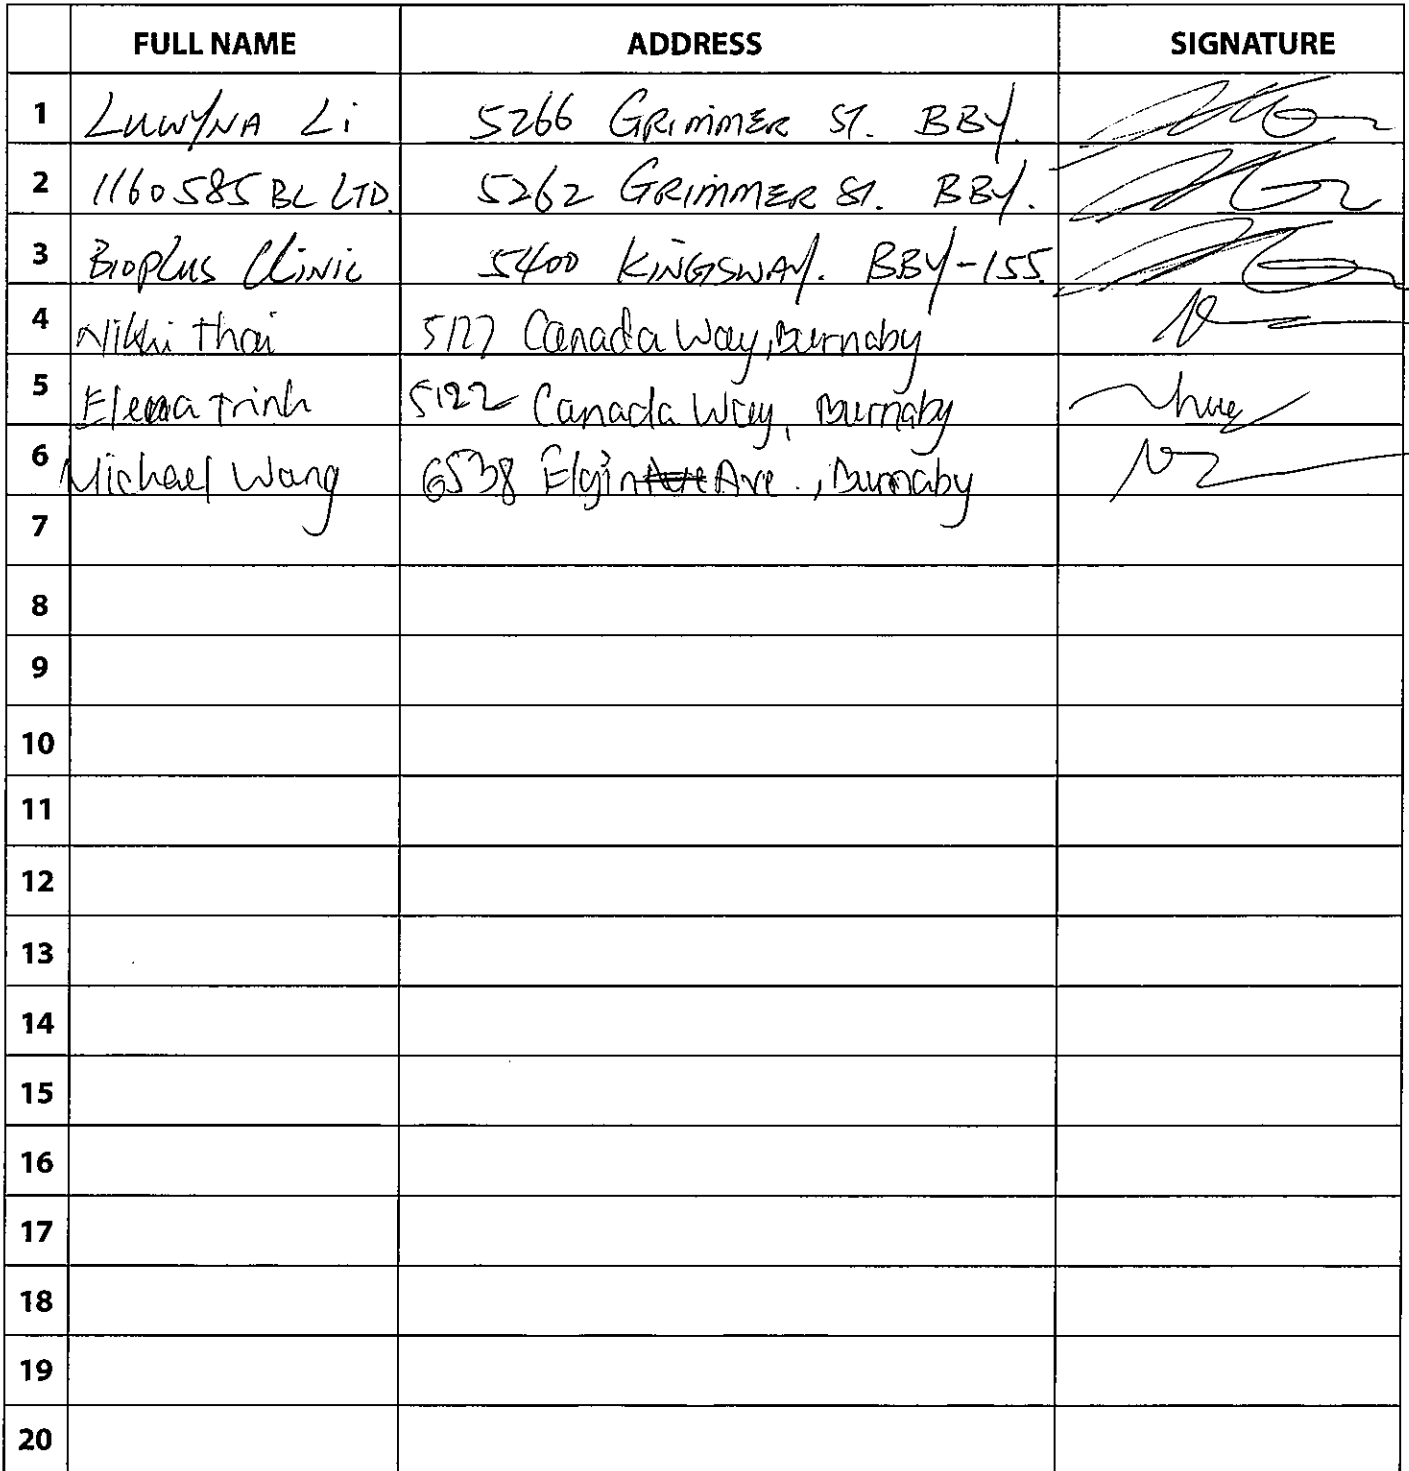 FULL NAME ADDRESS SIGNATURE
1 Luwyna Li 5266 Grimmer St. BBY.
2 1160585 BC LTD. 5262 Grimmer St. BBY.
3 Bioplus Clinic 5400 Kingsway. BBY-155
4 Nikki Thai 5177 Canada Way, Burnaby
5 Elena Trinh 5122 Canada Way, Burnaby
6 Michael Wang 6538 Elgin Ave., Burnaby
7
8
9
10
11
12
13
14
15
16
17
18
19
20